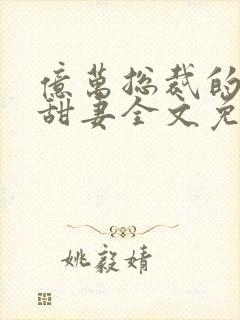 億萬總裁的
甜妻全文免
姚毅婧